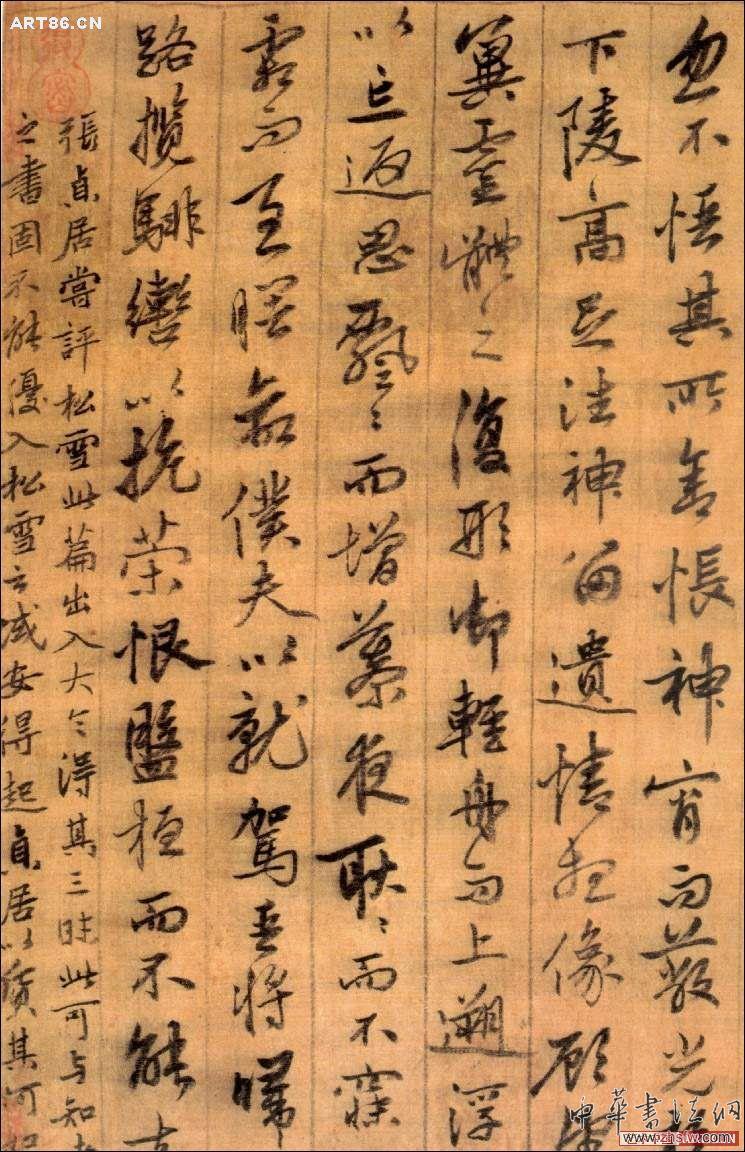 ART86.CN
忽不悟其所舍悵神宵而蔽光
下陵高足往神留遺情想像顧
冀靈體之復形御輕舟而上遡浮
以忘返思飄〻而增慕夜耿〻而不寐
霜而至曙命僕夫以就駕吾將歸
路攬騑轡以抗策恨盤桓而不能去
張貞居嘗評松雪此篇出入大令得其三昧此可与知
之書固不能優入松雪之域安得起貞居以質其何如
中華書法網
www.zhsfw.com